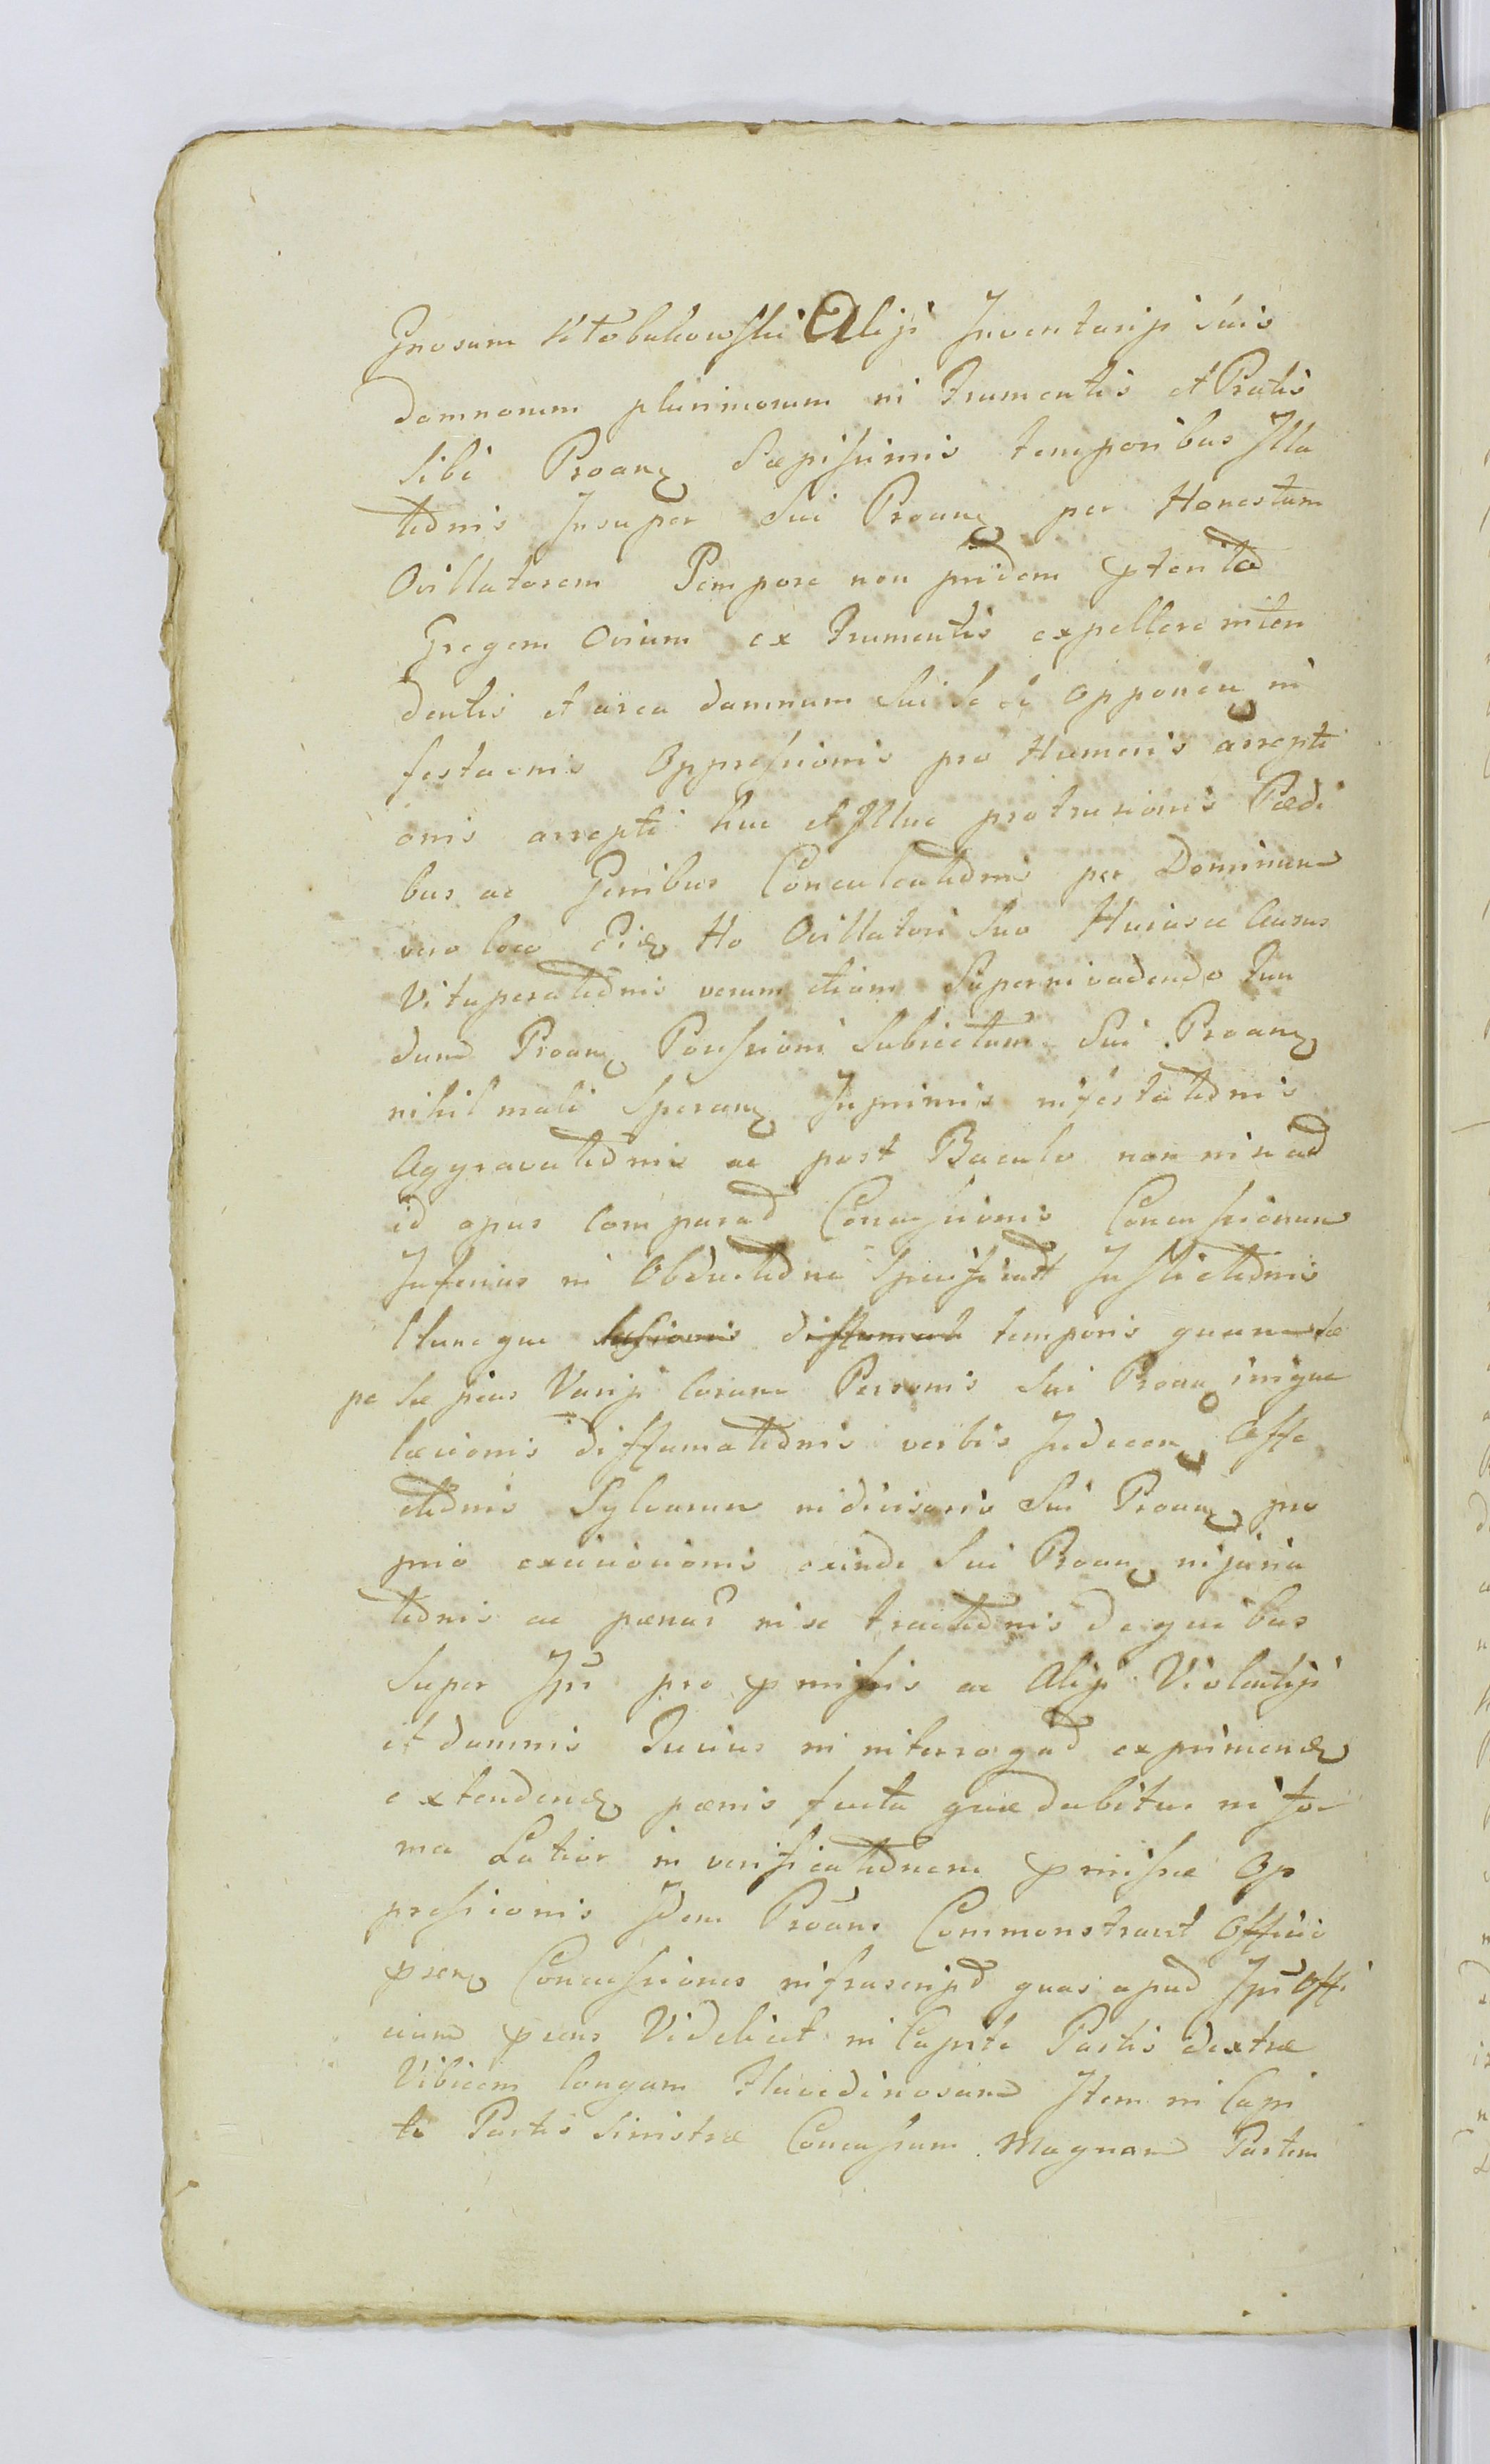 Gnosum Kłobukowski Aliji Inventarijs suis
damnorum plurimorum in Frumentis et Pratis
sibi Proanti Sæpissimis temporibus Illa
tionis Insuper sui Proantis per Honestum
Ovillatorem Tempore non pridem pterito
Gregem Ovium ex Frumentis expellere inten
dentis et area damnum sui se se opponen in
festaonis Oppressionis pro Humeris arrepti
onis arrepti huc et Illuc protrusionis Pædi
bus ac Genibus Conculcationis per Dominum
vero loco Eide Ho Ovillatori suo Huiusce Ausus
Vituperationis verum etiam Superinvadendo Fun
dum Proantis Possessioni Subiectum Sui Proantis
nihil mali Sperantis Inprimis infestationis
Aggravationis ac post Baculo non nisi ad
id opus Comparato Concussionis Concussionum
Inferius in Obductione Specificat Inflictionis
tunc que læsionis diffamat temporis quam sæ
pe sæpius Varijs coram Personis Sui Proantis inique
læcionis diffamationis verbis Indecen Affe
ctionis Sylvarum indivisaris Sui Proantis pro
prio exicicionis exinde Sui Proantis injuria
tionis ac pænar in se tractionis de quibus
super Ipse pro pmissis ac Alijs Violentijs
et damnis Fucius in interrogad exprimend
extendend pænis facta quæ dabitur in for
ma Latior in verificationem pmissæ Op
pressionis Idem Proans Commonstravit Officio
psen Concussiones infrascript quas apud Ipse Offi
cium psens Videlicet in Capite Partis dextræ
Vibicem longam Flavedinosam Item in Capi
te Partis Sinistræ Concussum Magnam Partem